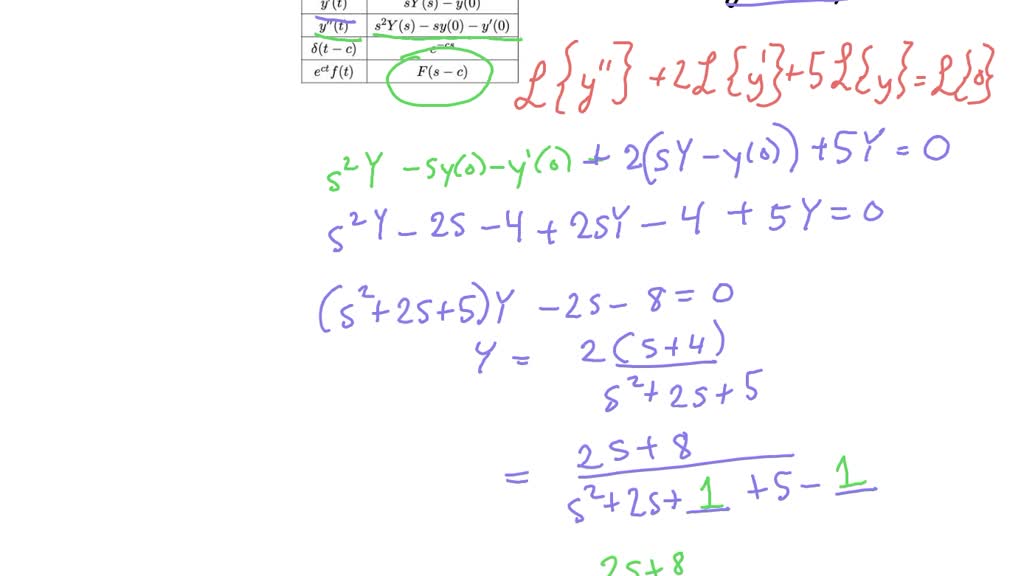 y′(t) sY(s) − y(0)
y″(t) s²Y(s) − sy(0) − y′(0)
δ(t − c) e⁻ᶜˢ
eᶜᵗf(t) F(s − c)
ℒ{y″} + 2ℒ{y'} + 5ℒ{y} = ℒ{0}
s²Y − sy(0) − y'(0) + 2(sY − y(0)) + 5Y = 0
s²Y − 2s − 4 + 2sY − 4 + 5Y = 0
(s² + 2s + 5)Y − 2s − 8 = 0
Y = 2(s + 4)
s² + 2s + 5
= 2s + 8
s² + 2s + 1 + 5 − 1
2s + 8